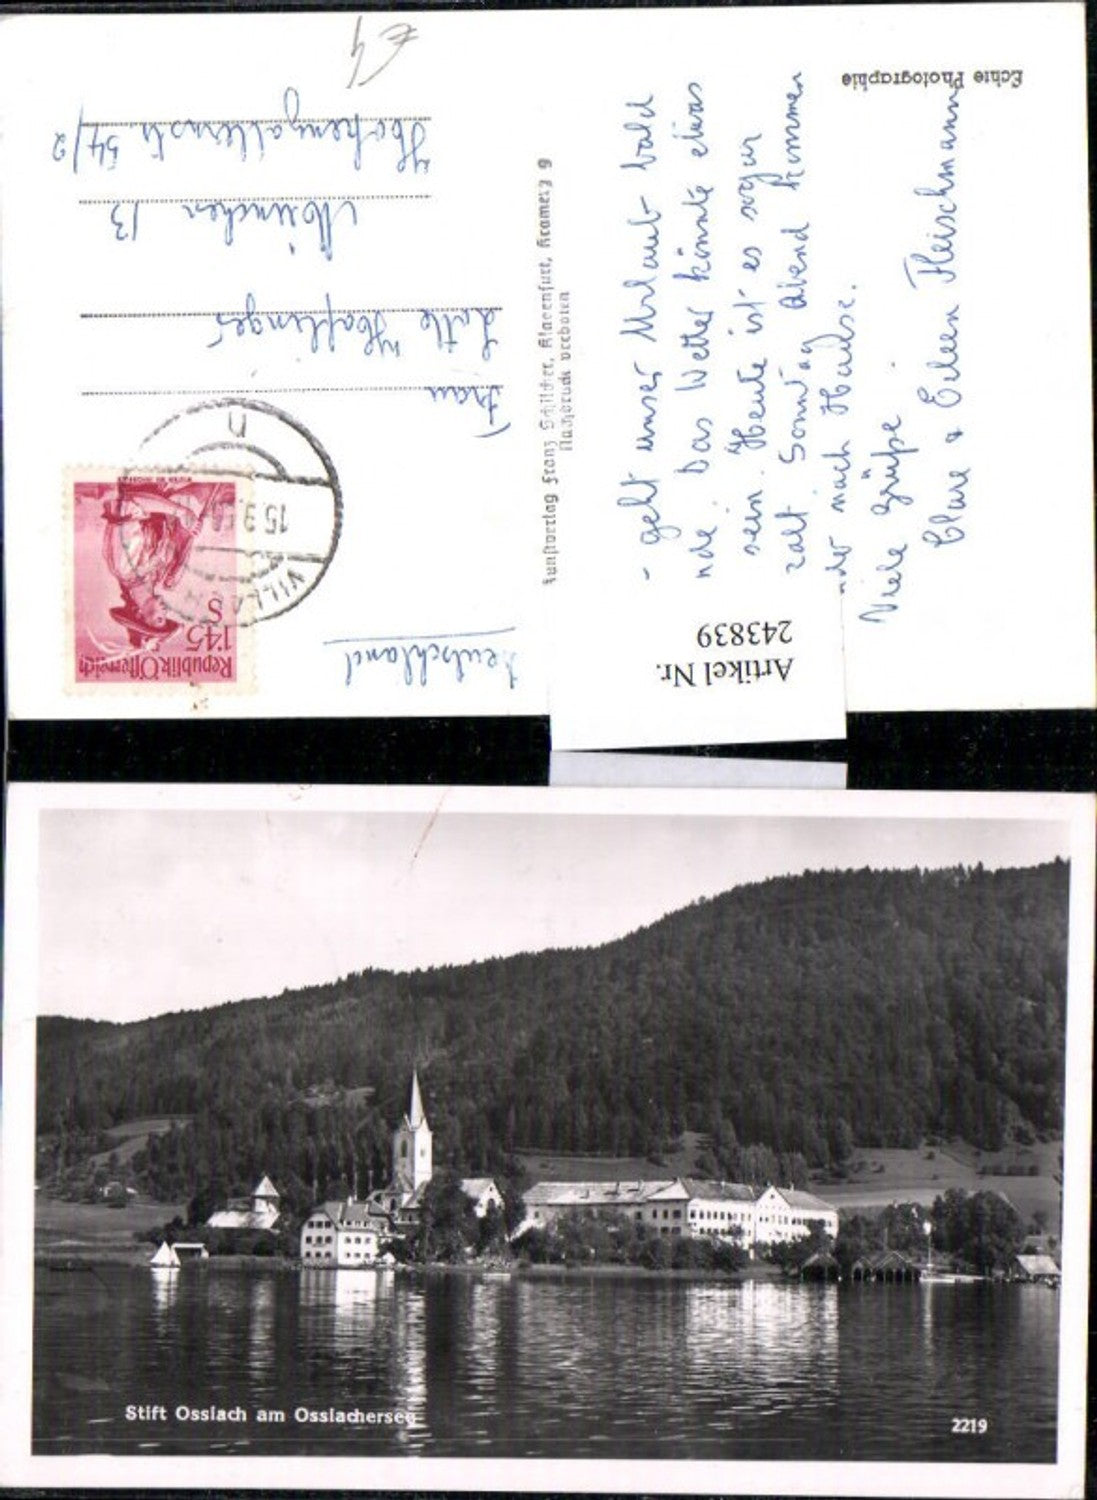 Echte Photographie
€ 4
- geht unser Urlaub bald
nde. Das Wetter könnte etwas
sein. Heute ist es sogar
kalt. Sonntag Abend kommen
nach Hause.
Viele Grüße
Clare & Eileen Fleischmann
Kunstverlag Franz Schilcher, Klagenfurt, Kramerg 9
Nachdruck verboten
Frau
Lotte Haflinger
München 13
Hohenzollernstr. 54/2
Deutschland
Republik Österreich
1'45
S
VILLACH
15.9.5
n
Artikel Nr.
243839
Stift Ossiach am Ossiachersee
2219